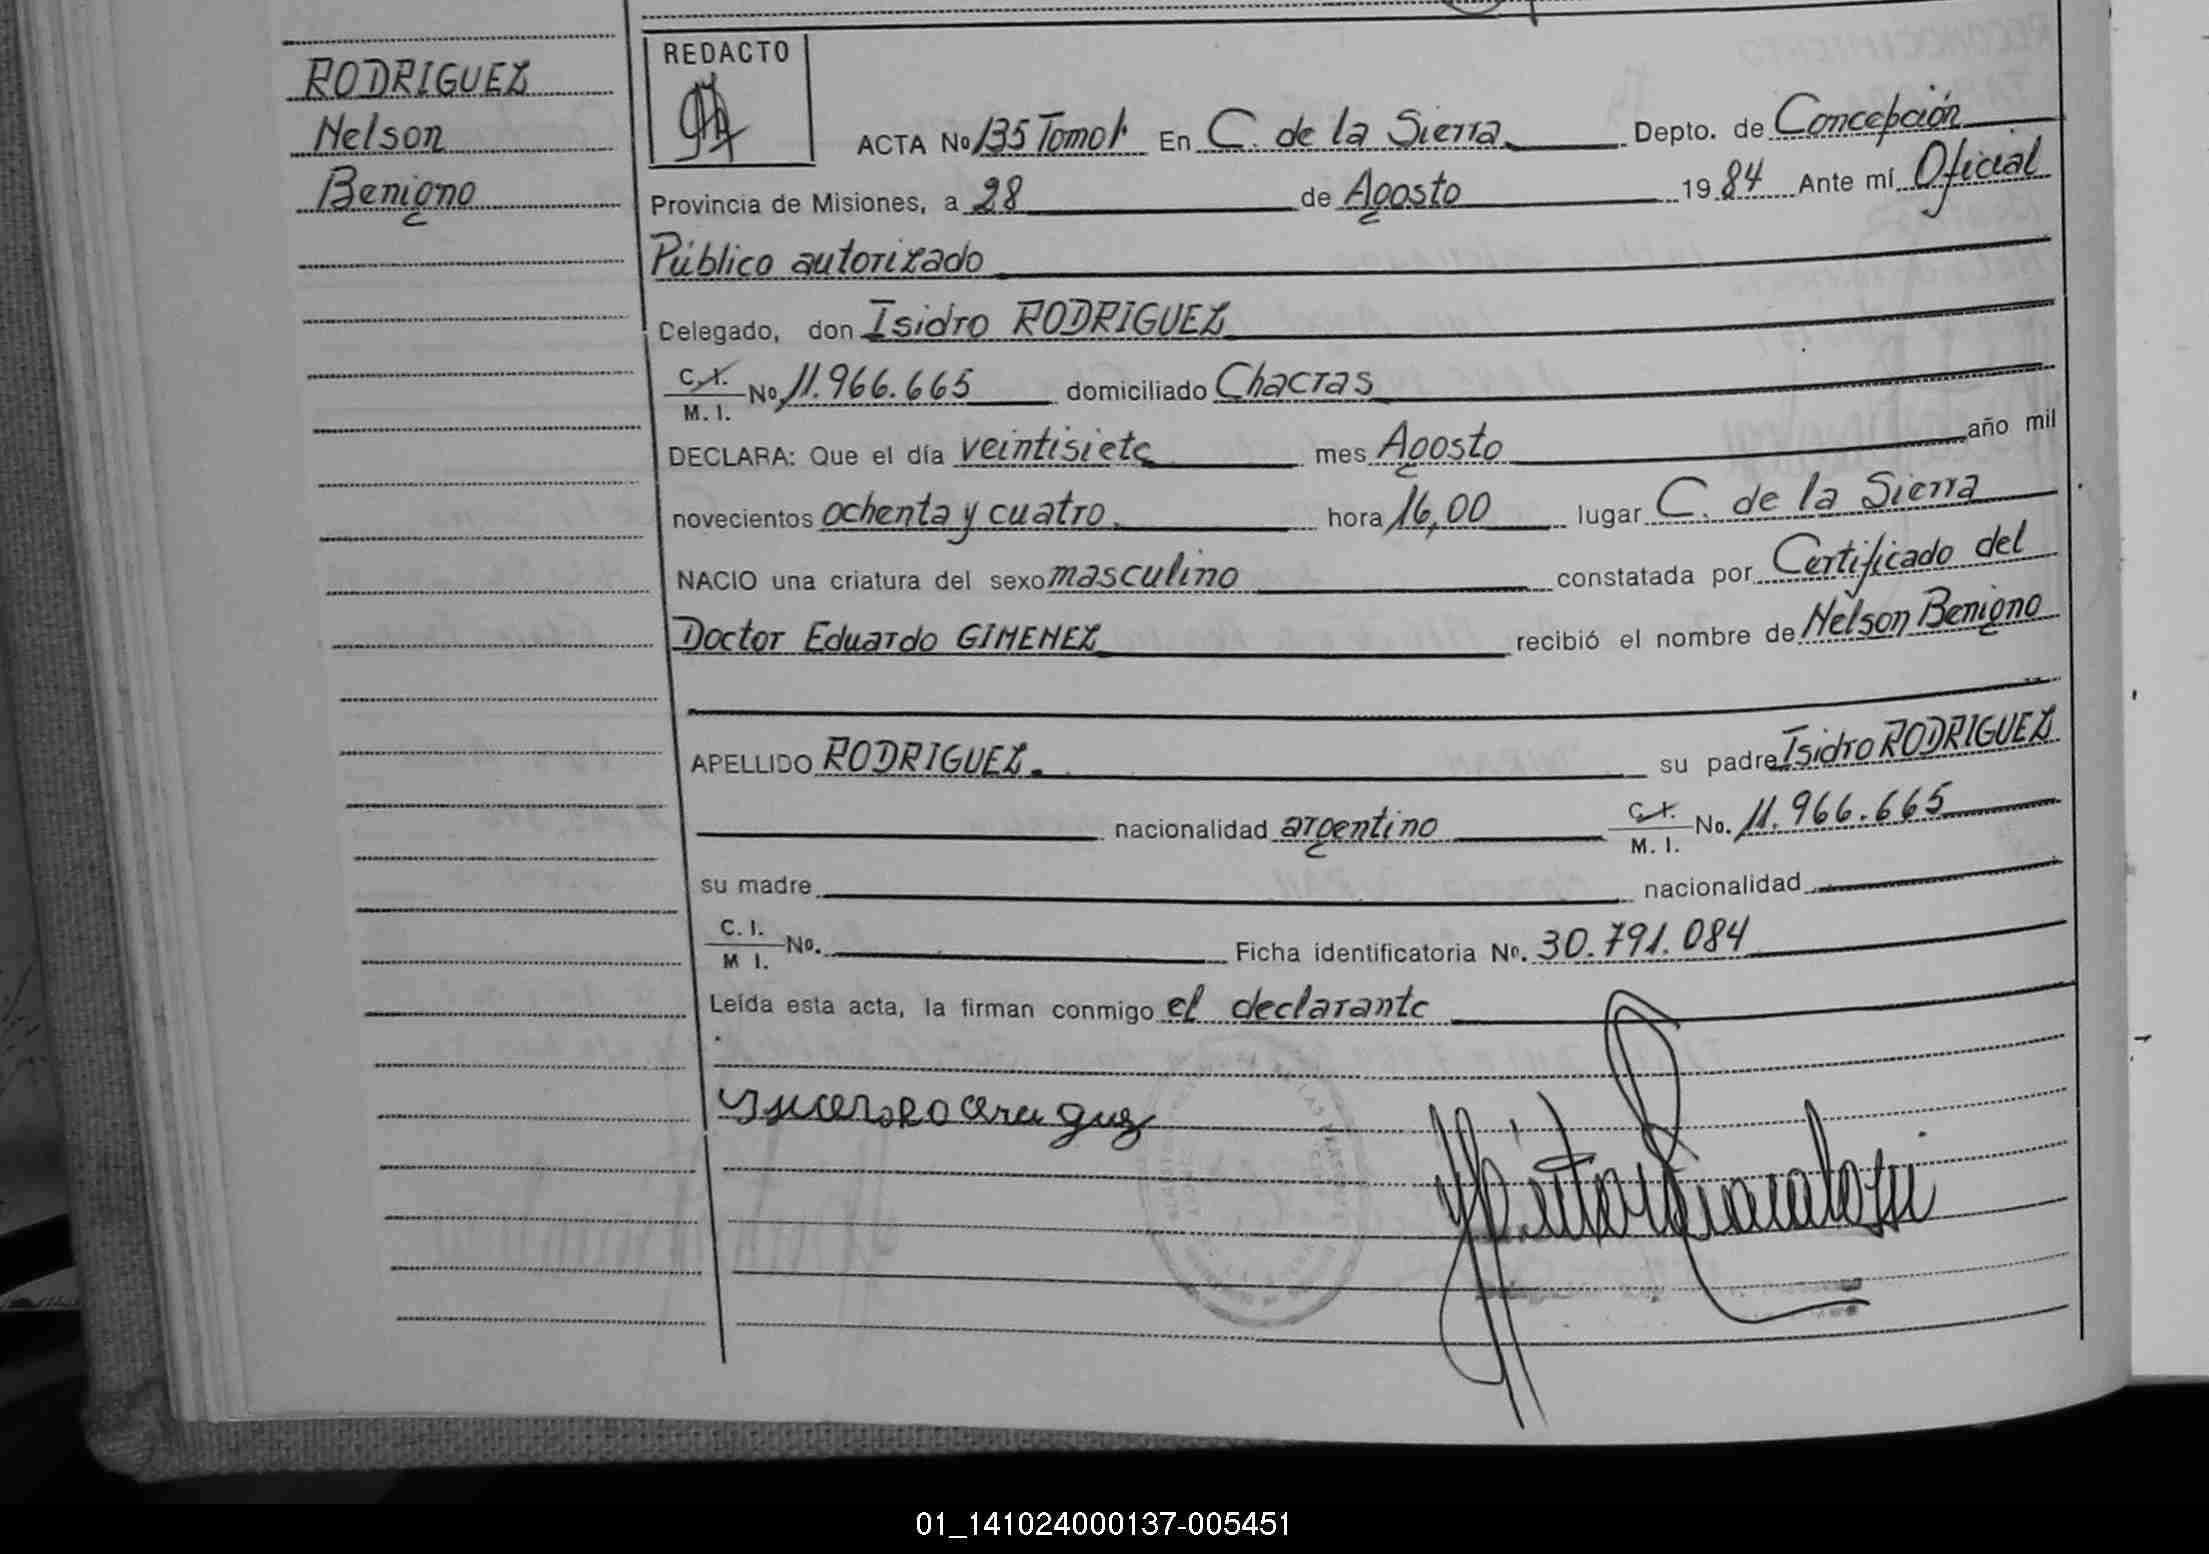 RODRIGUEZ
Nelson
Benigno
REDACTO
ACTA No 135 Tomo 1 En C. de la Sierra Depto. de Concepción
Provincia de Misiones, a 28 de Agosto 1984 Ante mí Oficial
Público autorizado
Celegado, don Isidro RODRIGUEZ
C.I. / M. I. No 11.966.665 domiciliado Chacras
DECLARA: Que el día veintisiete mes Agosto año mil
novecientos ochenta y cuatro hora 16,00 lugar C. de la Sierra
NACIO una criatura del sexo masculino constatada por Certificado del
Doctor Eduardo GIMENEZ recibió el nombre de Nelson Benigno
APELLIDO RODRIGUEZ su padre Isidro RODRIGUEZ
nacionalidad argentino C.I. / M. I. No. 11.966.665
su madre nacionalidad
C. I. / M I. No. Ficha identificatoria No. 30.791.084
Leída esta acta, la firman conmigo el declarante
01_141024000137-005451